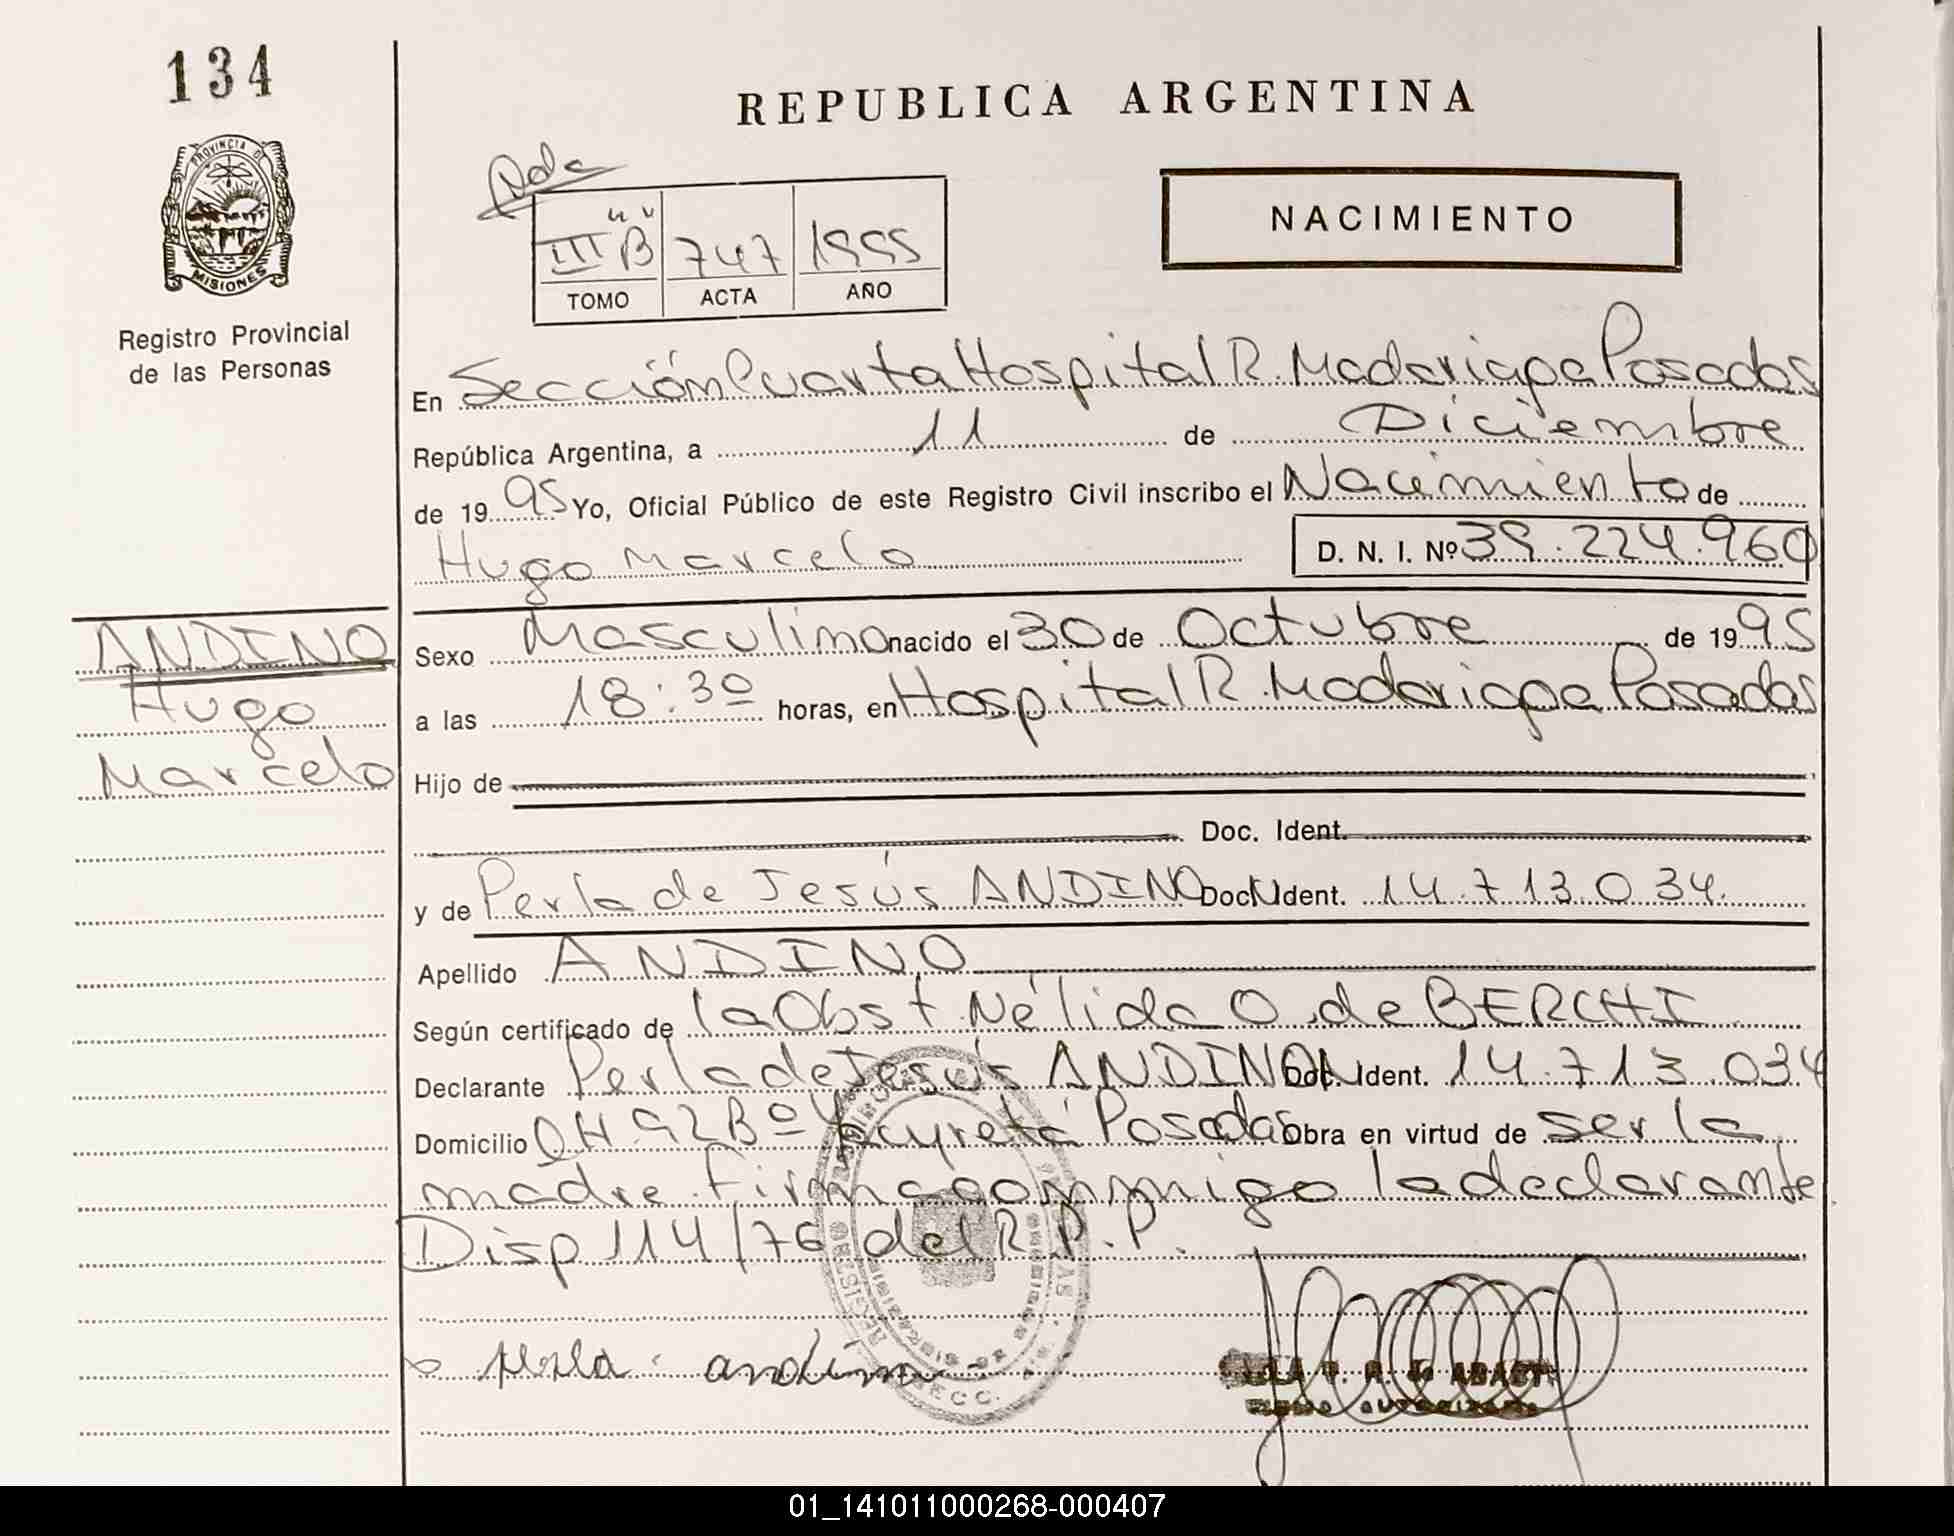 134
REPUBLICA ARGENTINA
PROVINCIA DE
MISIONES
Registro Provincial
de las Personas
NACIMIENTO
III "B" 747 1995
TOMO ACTA AÑO
En Sección Cuarta Hospital R. Madariaga Posadas
República Argentina, a 11 de Diciembre
de 1995 Yo, Oficial Público de este Registro Civil inscribo el Nacimiento de
Hugo Marcelo D. N. I. Nº 39.224.960
ANDINO
Hugo
Marcelo
Sexo Masculino nacido el 30 de Octubre de 1995
a las 18:30 horas, en Hospital R. Madariaga Posadas
Hijo de
Doc. Ident.
y de Perla de Jesús ANDINO Doc. Ident. 14.713.034.
Apellido ANDINO
Según certificado de la Obst. Nélida O. de BERCHI
Declarante Perla de Jesús ANDINO Doc. Ident. 14.713.034
Domicilio CH 92 Bº Yacyretá Posadas Obra en virtud de ser la
madre. Firma conmigo la declarante
Disp 114/76 del R.P.P.
Perla andino
01_141011000268-000407